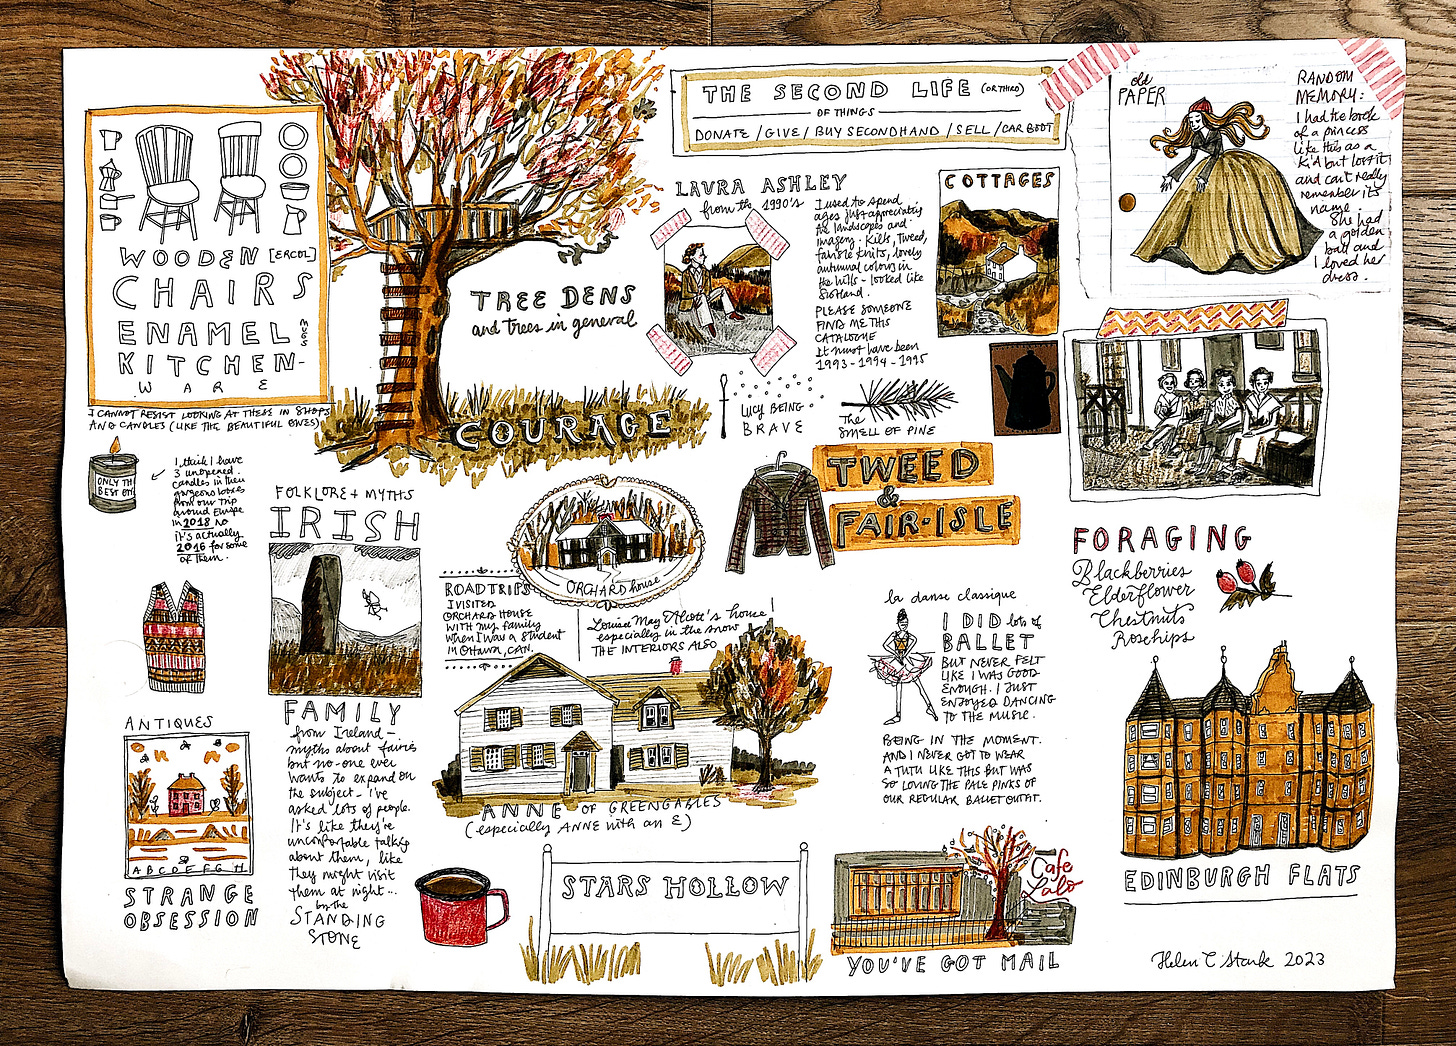 WOODEN [ERCOL]
CHAIRS
ENAMEL MUGS
KITCHEN-
WARE
I CANNOT RESIST LOOKING AT THESE IN SHOPS
AND CANDLES (LIKE THE BEAUTIFUL ONES)
ONLY THE
BEST ONE
I think I have
3 unopened
candles in their
gorgeous boxes
from our trip
around Europe
in 2018 no
it's actually
2016 for some
of them.
TREE DENS
and trees in general
COURAGE
THE SECOND LIFE (OR THIRD)
OF THINGS
DONATE / GIVE / BUY SECONDHAND / SELL / CAR BOOT
LAURA ASHLEY
from the 1990's
I used to spend
ages just appreciating
the landscapes and
imagery - Kilts, Tweed,
fairisle knits, lovely
autumnal colours in
the hills - looked like
Scotland.
PLEASE SOMEONE
FIND ME THIS
CATALOGUE
It must have been
1993 - 1994 - 1995
COTTAGES
old
PAPER
RANDOM
MEMORY:
I had the book
of a princess
like this as a
kid but lost it
and can't really
remember its
name.
She had
a golden
ball and
I loved her
dress.
LUCY BEING
BRAVE
The
SMELL OF PINE
TWEED
&
FAIR-ISLE
FOLKLORE + MYTHS
IRISH
FAMILY
from Ireland -
myths about fairies
but no-one ever
wants to expand on
the subject - I've
asked lots of people.
It's like they're
uncomfortable talking
about them, like
they might visit
them at night...
by the
STANDING
STONE
ORCHARD house
ROADTRIPS
I VISITED
ORCHARD HOUSE
WITH my family
when I was a student
in Ottawa, CAN.
Louisa May Alcott's house!
especially in the snow
THE INTERIORS ALSO
ANNE OF GREENGABLES
(especially ANNE with an E)
ANTIQUES
A B C D E F G H
STRANGE
OBSESSION
STARS HOLLOW
la danse classique
I DID lots of
BALLET
BUT NEVER FELT
LIKE I WAS GOOD
ENOUGH. I JUST
ENJOYED DANCING
TO THE MUSIC.
BEING IN THE MOMENT.
AND I NEVER GOT TO WEAR
A TUTU LIKE THIS BUT WAS
SO LOVING THE PALE PINKS OF
OUR REGULAR BALLET OUTFIT.
Cafe
Lalo
YOU'VE GOT MAIL
FORAGING
Blackberries
Elderflower
Chestnuts
Rosehips
EDINBURGH FLATS
Helen C Stark 2023